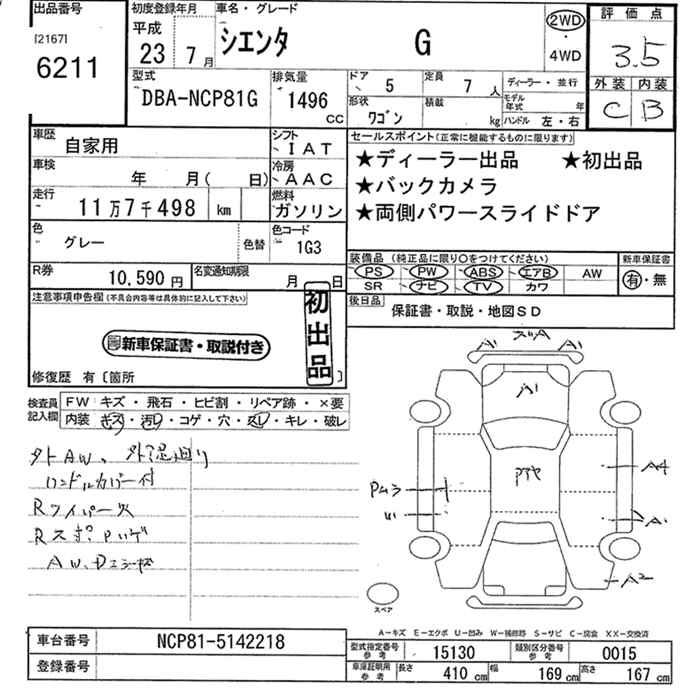 出品番号 初度登録年月 車名・グレード 評価点
[2167] 6211
平成 23年 7月 シエンタ G 2WD・4WD 3.5
型式 排気量 ドア 5 定員 7人 ディーラー・並行 外装 内装
DBA-NCP81G 1496cc 形状 ワゴン 積載 kg モデル年式 年 ハンドル 左・右 C B
車歴 自家用 シフト IAT セールスポイント(正常に機能するものに限ります)
車検 年 月( 日) 冷房 AAC ★ディーラー出品 ★初出品
★バックカメラ
走行 11万7千498 km 燃料 ガソリン ★両側パワースライドドア
色 グレー 色替 色コード 1G3
装備品(純正品に限り○をつけてください) 新車保証書
R券 10,590円 名変通知期限 月 日 PS PW ABS エアB AW 有・無
SR ナビ TV カワ
注意事項申告欄(不具合内容等は具体的に記入して下さい) 初出品 後日品 保証書・取説・地図SD
新車保証書・取説付き
修復歴 有〔箇所 〕
検査員記入欄 FW キズ・飛石・ヒビ割・リペア跡・×要
内装 キズ・汚レ・コゲ・穴・スレ・キレ・破レ
外AW、外混廻り
ハンドルカバー付
Rワイパー欠
AW、
A1 A1
A1
Pムラ A4
A1
A2
スペア
A-キズ E-エクボ U-凹み W-補修跡 S-サビ C-腐食 XX-交換済
車台番号 NCP81-5142218 型式指定番号 参考 15130 類別区分番号 参考 0015
登録番号 車庫証明用 参考 長さ 410cm 幅 169cm 高さ 167cm